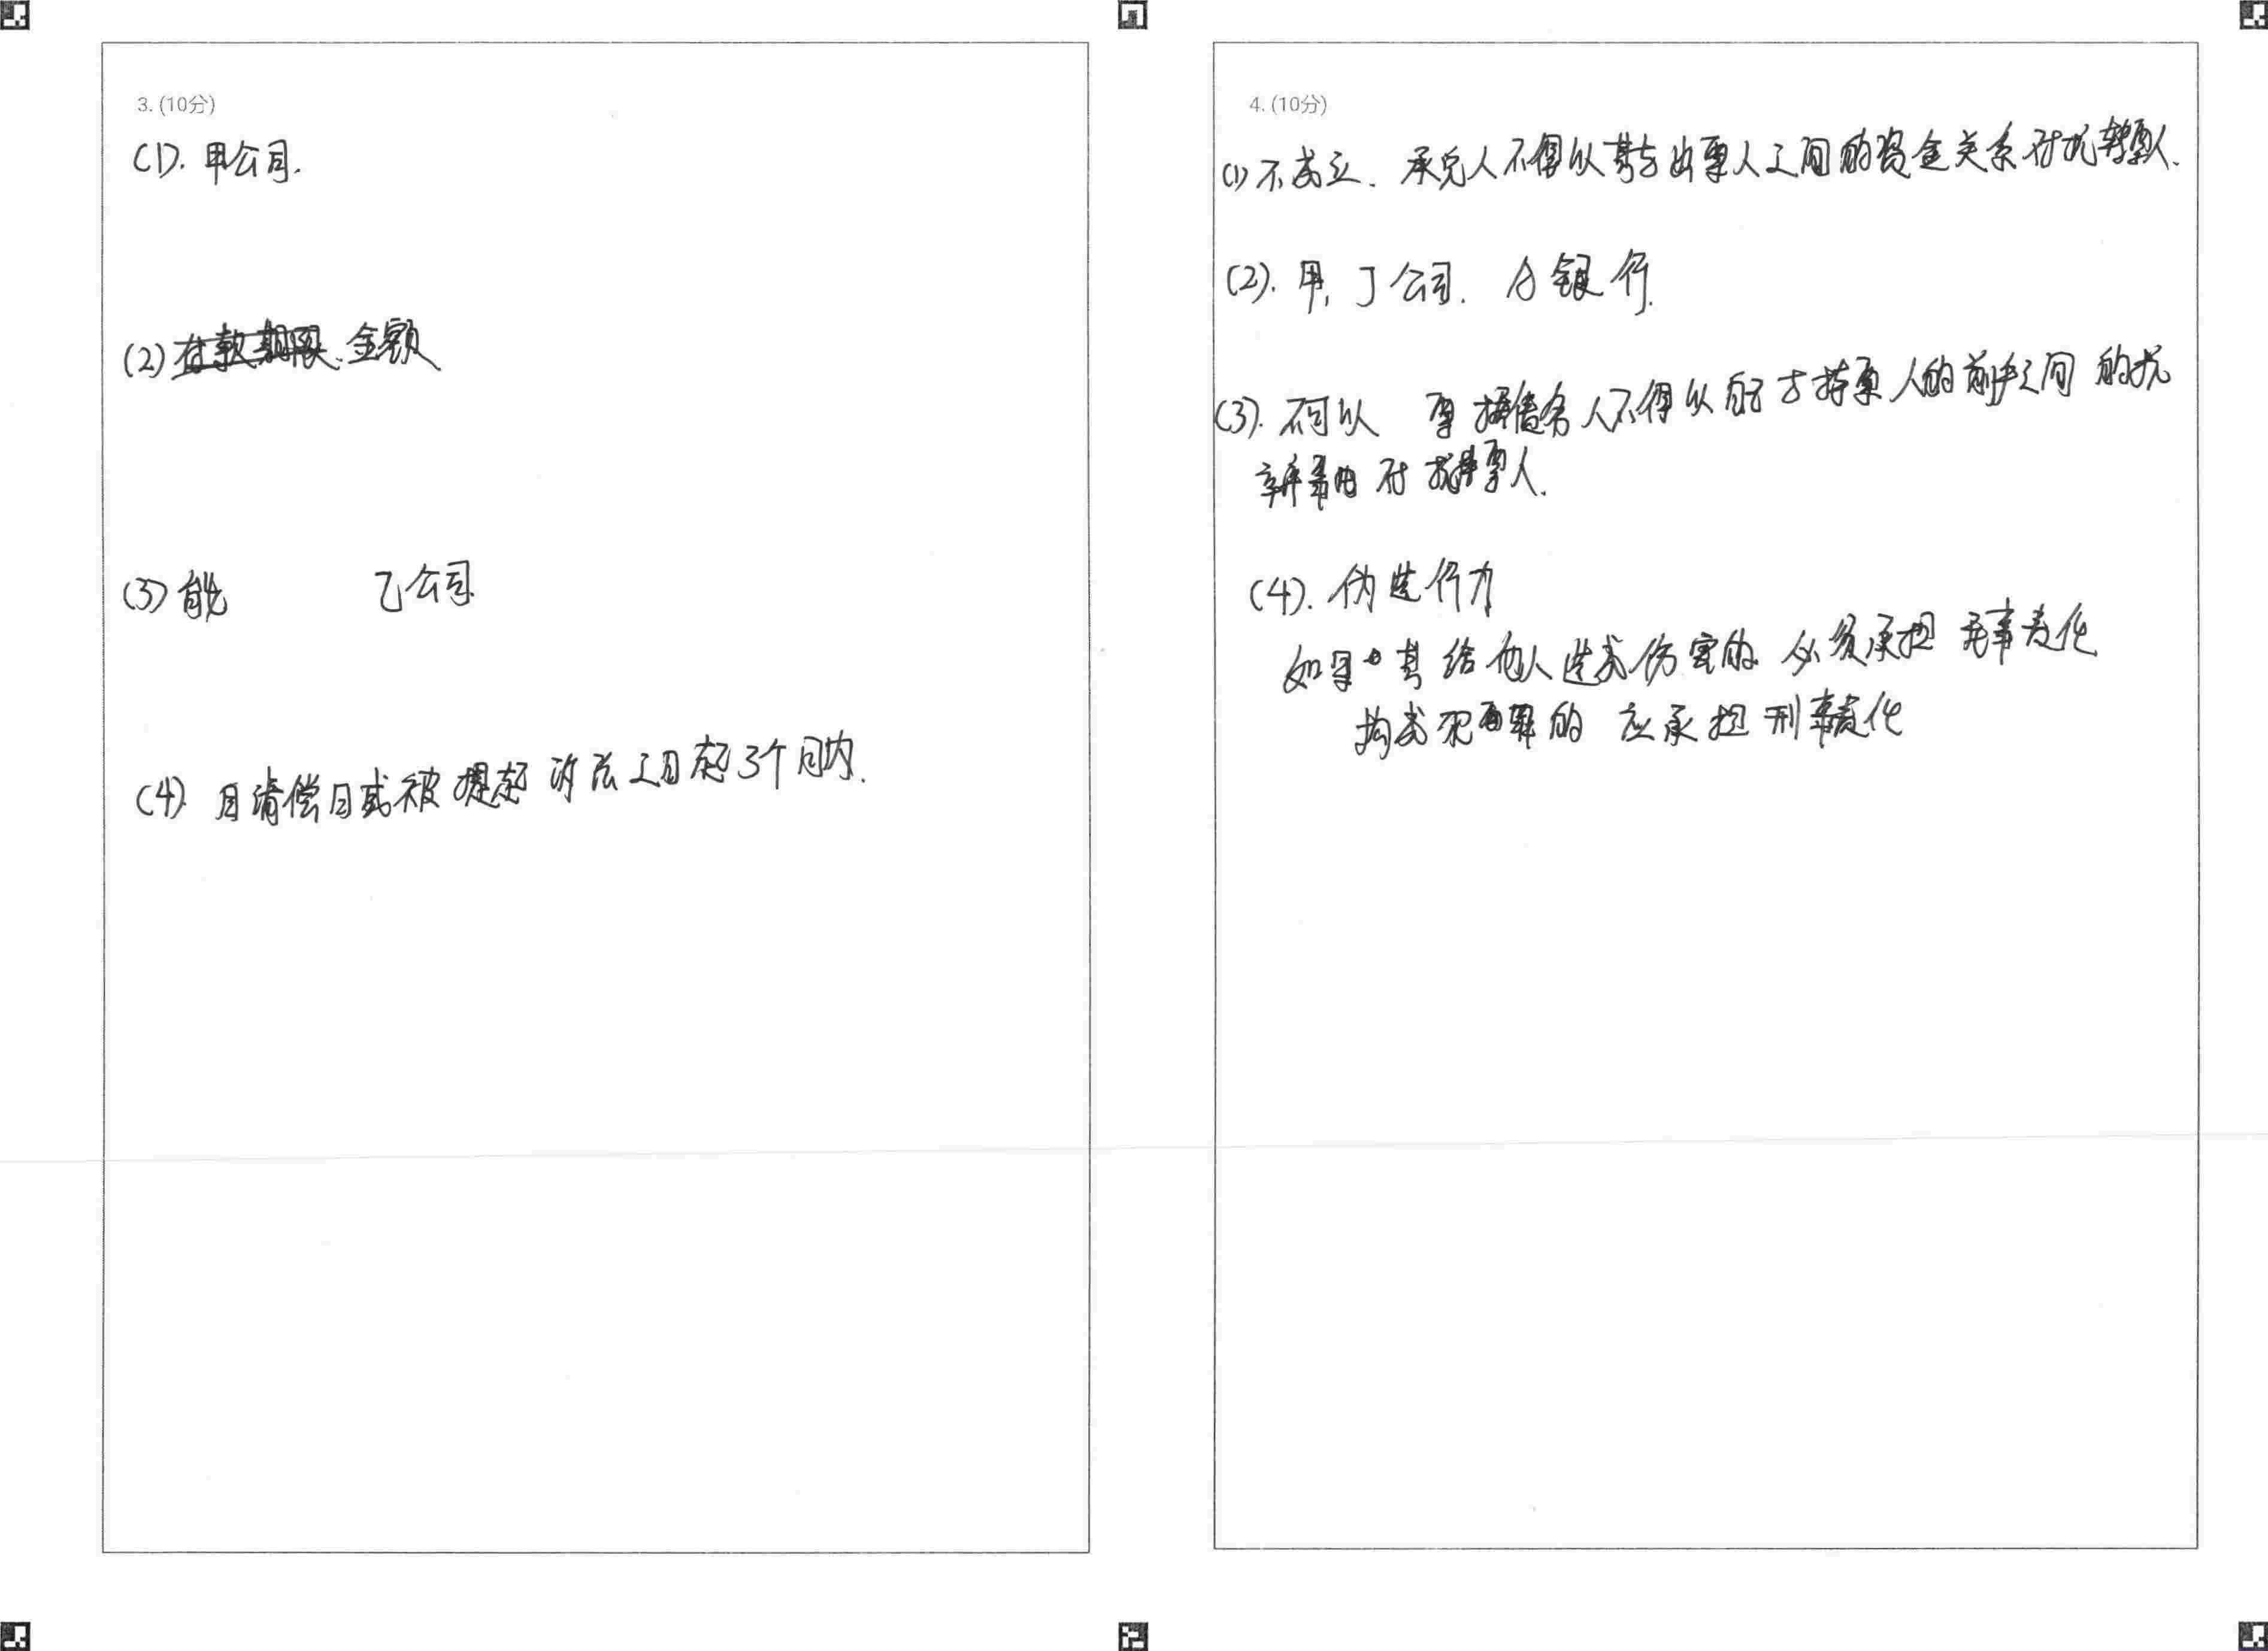 3. (10分)
(1). 甲公司.
(2) 金额
(3) 能 乙公司
(4) 自清偿日或被提起诉讼之日起3个月内.
4. (10分)
(1) 不成立. 承兑人不得以其与出票人之间的资金关系对抗持票人.
(2). 甲, 丁公司. A银行.
(3). 不可以 票据债务人不得以自己与持票人的前手之间的抗
辩事由对抗持票人.
(4). 伪造行为
如果其给他人造成伤害的 必须承担民事责任
构成犯罪的 应承担刑事责任